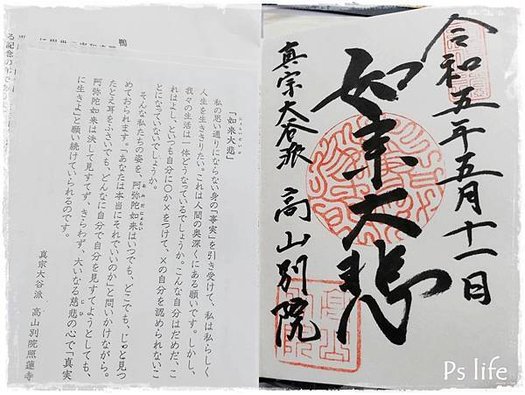 「如来大悲」
にょらいだいひ
私の思い通りにならない身の「事実」を引き受けて、私は私らしく
人生を生ききりたい。これは人間の奥深くにある願いです。しかし、
我々の生活は一体どうなっているでしょうか。こんな自分はだめだ、こ
ればよし、といつも自分に〇か×をつけて、×の自分を認められないこ
とになっていないでしょうか。
そんな私たちの姿を、阿弥陀如来はいつでも、どこでも、じっと見つ
めておられます。「あなたは本当にそれでいいのか」と問いかけながら。
たとえ耳をふさいでも、どんなに自分で自分を見すてようとしても、
阿弥陀如来は決して見すてず、きらわず、大いなる慈悲の心で「真実
に生きよ」と願い続けていられるのです。
真宗大谷派 高山別院照蓮寺
令和五年五月十一日
如来大悲
真宗大谷派 高山別院
Ps life